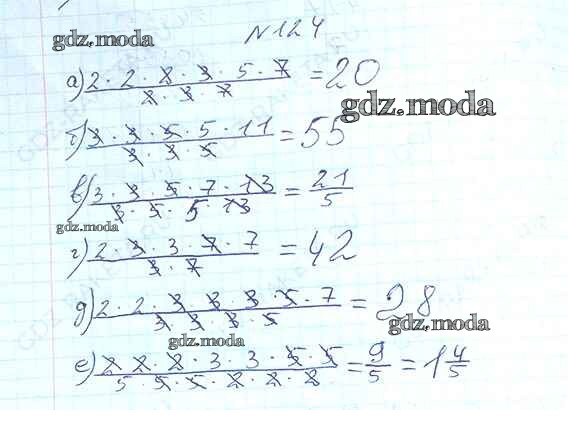 №124
gdz.moda
а) 2 · 2 · 2 · 3 · 5 · 7 / 2 · 3 · 7 = 20
gdz.moda
б) 3 · 3 · 5 · 5 · 11 / 3 · 3 · 5 = 55
в) 3 · 3 · 5 · 7 · 13 / 3 · 5 · 5 · 13 = 21/5
gdz.moda
г) 2 · 3 · 3 · 7 · 7 / 3 · 7 = 42
д) 2 · 2 · 3 · 3 · 3 · 5 · 7 / 3 · 3 · 3 · 5 = 28
gdz.moda
gdz.moda
е) 2 · 2 · 2 · 3 · 3 · 5 · 5 / 5 · 5 · 5 · 2 · 2 · 2 = 9/5 = 1 4/5